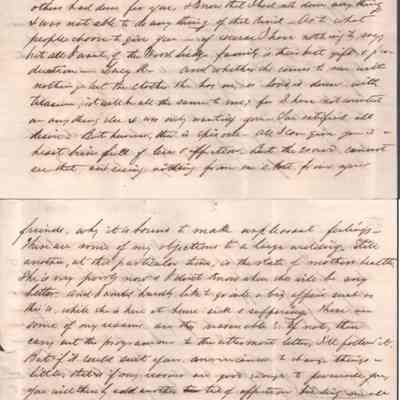 others had done for you, & knew that I had not done any thing
I was not able to do any thing of that kind — As to what
people choose to give you — of course I have nothing to say
but all I want of the family is their best gift
and whether she comes to me with
nothing but the clothes she has on, or loaded down with
it will be all the same to me; for I have not counted
on any thing else I was only wanting you — I'm satisfied all
But then, this is private all I can give you is a
heart brim full of love & affection, but the crowd cannot
see that, and seeing nothing from me & that from your
friends, why it is bound to make unpleasant feelings —
These are some of my objections to a large wedding, still
another, at this particular time, is the state of mothers health
She is very poorly now & I don't know when she will be any
better and I would hardly like to go into a big affair such as
this is, while she is here at home sick & suffering. These are
some of my reasons are they reasonable? if not, then
carry out the programme to the uttermost letter, I'll follow it.
But if it would suit your convenience to change things a
little, and if my reasons are good enough to persuade you
you will thereby add another tie of affection